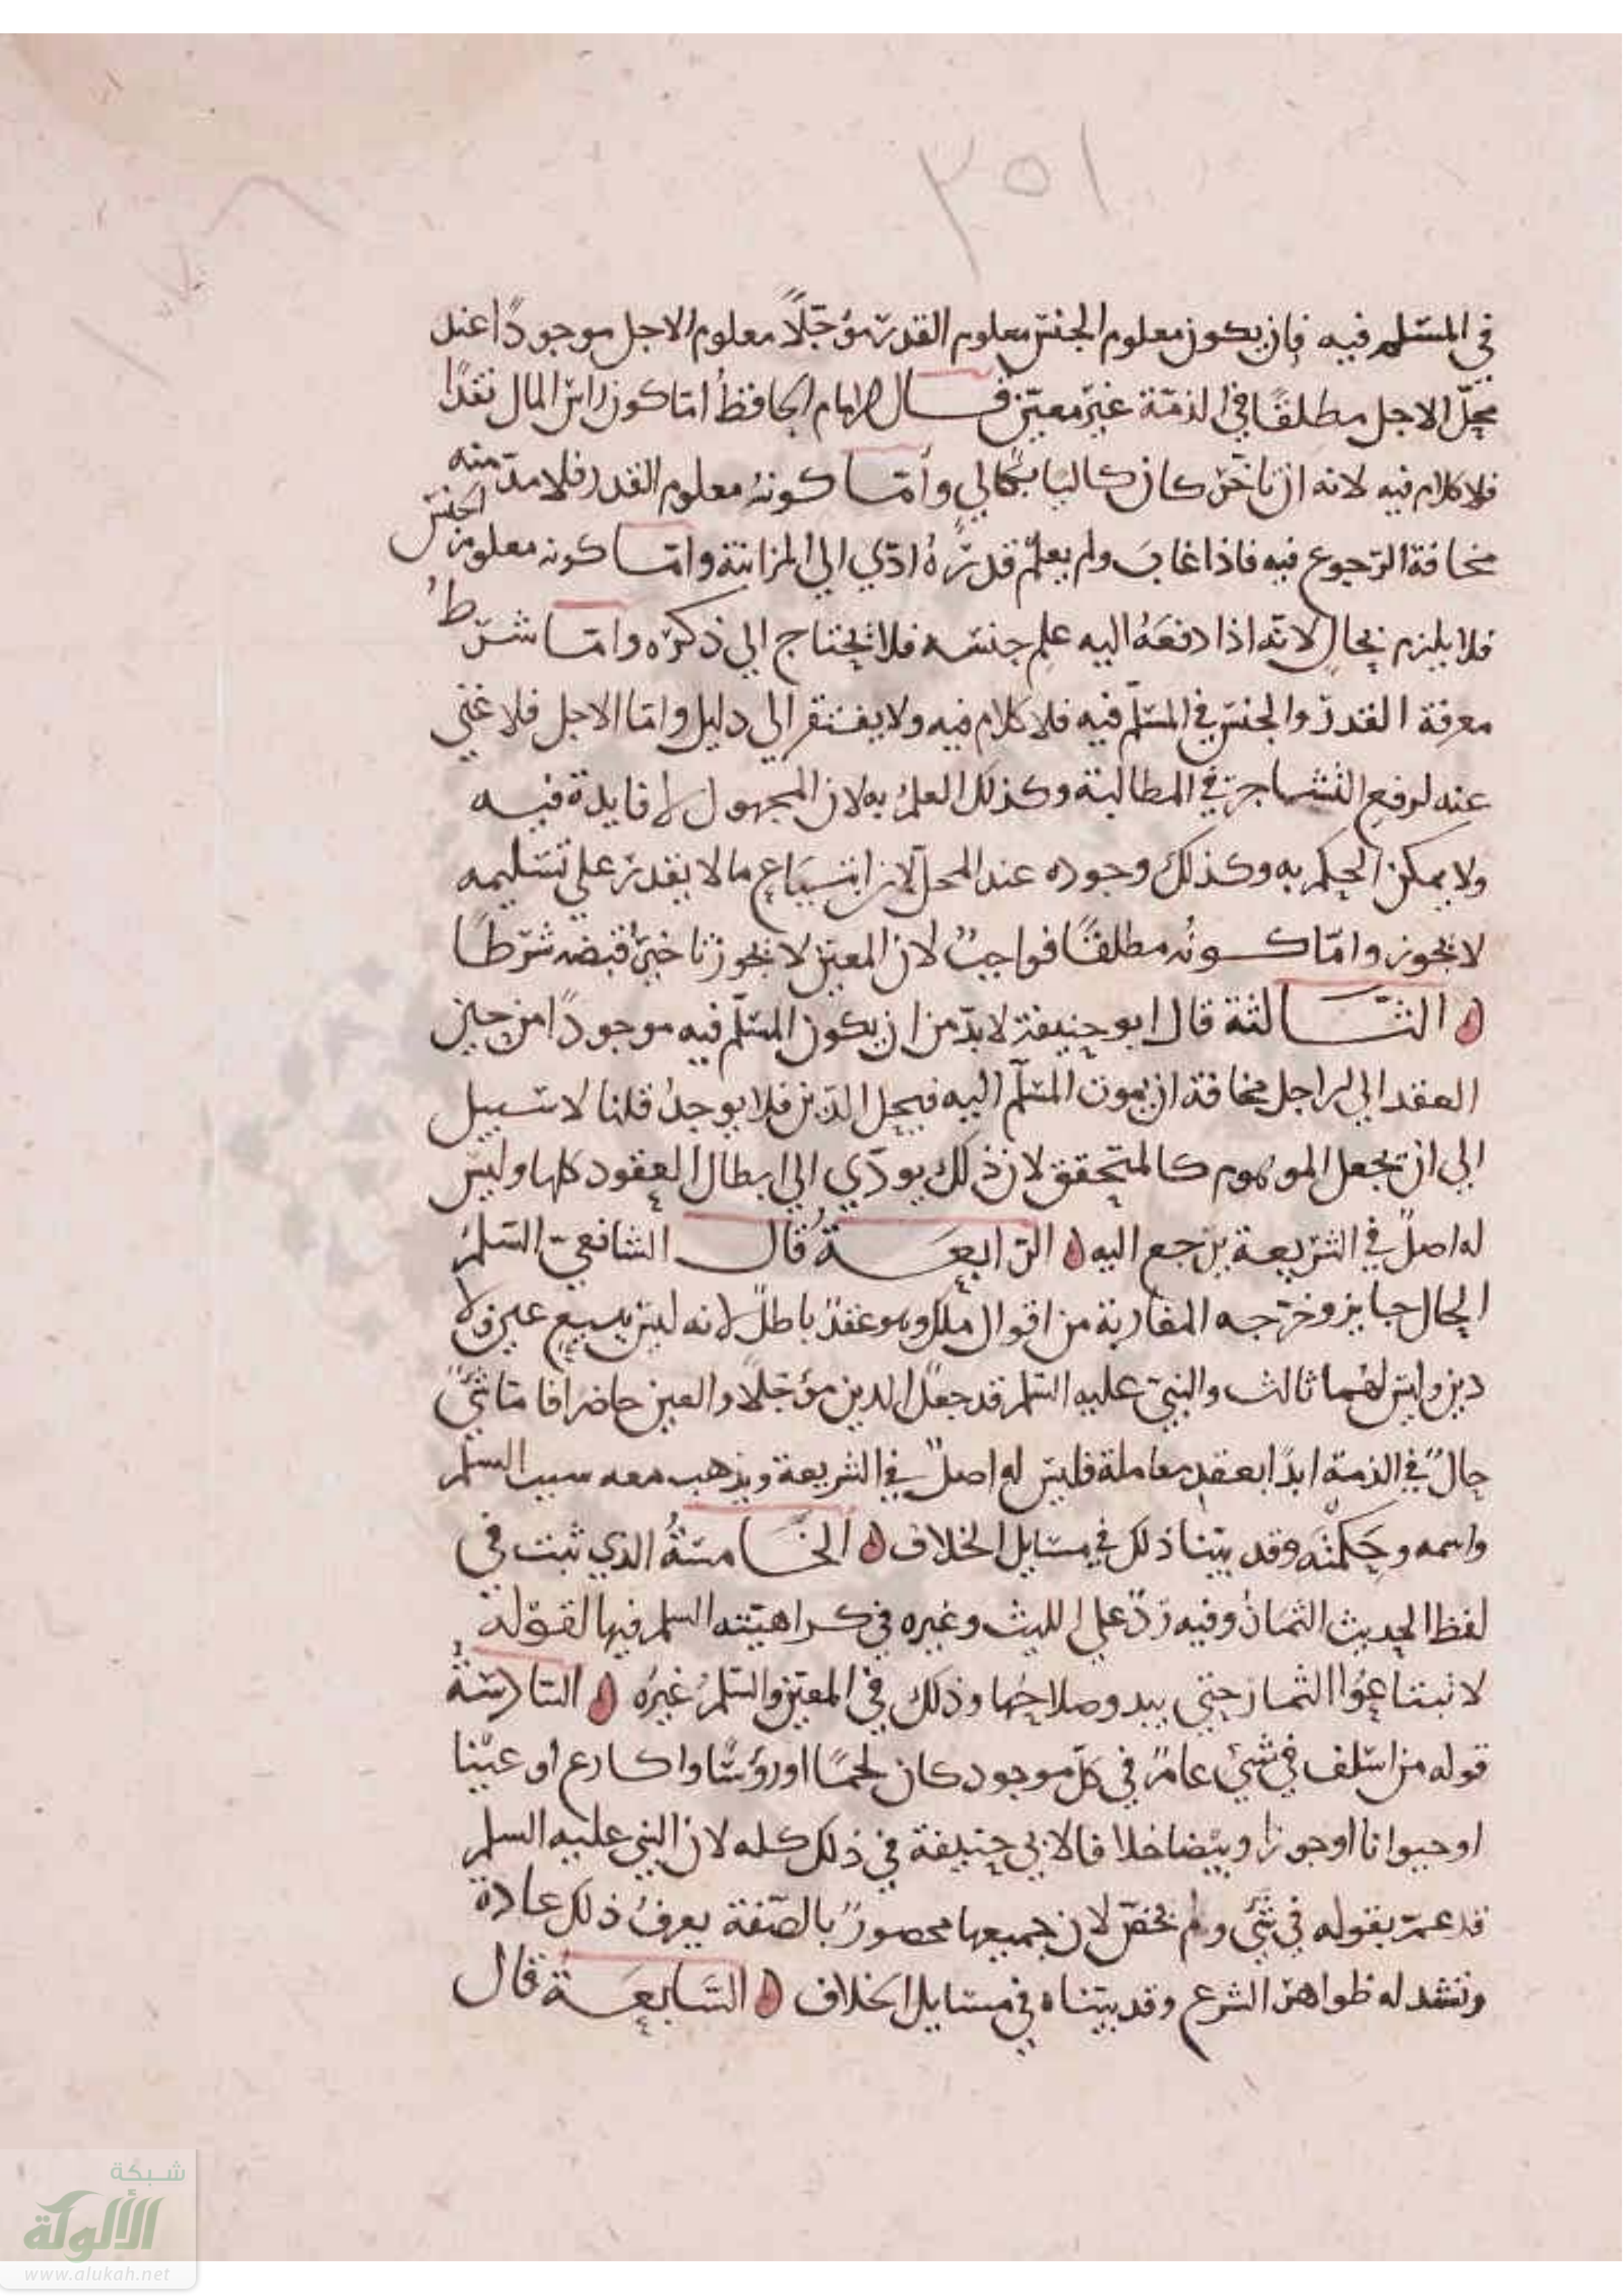 ٢٥١
في المسلم فيه فان يكون معلوم الجنس معلوم القدر مؤجلًا معلوم الاجل موجودًا عند
محلّ الاجل مطلقًا في الذمّة غير معين قال الامام الحافظ امّا كون راس المال نقدًا
فلا كلام فيه لانه ان تاخّر كان كاليا بكالي وأمّا كونه معلوم القدر فلا بد منه
مخافة الرّجوع فيه فاذا غاب ولم يعلم قدره ادّي الي المزابنة وامّا كونه معلوم الجنس
فلا يلزم بحالٍ لانّه اذا دفعه اليه علم جنسه فلا يحتاج الي ذكره وامّا شرط
معرفة القدر والجنس في المسلّم فيه فلا كلام فيه ولا يفتقر الي دليل وامّا الاجل فلا غني
عنه لرفع التشاجر في المطالبة وكذلك العلم به لان المجهول لا فايدة فيه
ولا يمكن الحكم به وكذلك وجوده عند المحلّ لان ابتياع ما لا يقدر علي تسليمه
لا يجوز وامّا كونُه مطلقًا فواجبٌ لان المعين لا يجوز تاخير قبضه شرطًا
الثالثة قال ابو حنيفة لا بدّ من ان يكون المسلّم فيه موجودًا من حين
العقد الي الاجل مخافة ان يموت المسلّم اليه فيحل الدّين فلا يوجد قلنا لا سبيل
الي ان يجعل الموهوم كالمتحقق لان ذلك يودّي الي ابطال العقود كلها وليس
له اصلٌ في الشريعة يرجع اليه الرّابعة قال الشافعيّ السّلم
الحال جايز وخرّجه المغاربة من اقوال ملك وهو عقدٌ باطلٌ لانه ليس ببيع عين ولا
دين وليس لهما ثالث والنبيّ عليه السلم قد جعل الدين مؤجلًا والعين حاضرا فامّا شئٌ
حالٌ في الذمّة ابدًا بعقد معاملة فليس له اصلٌ في الشريعة ويذهب معه سبب السلم
واسمه وحكمتُه وقد بيّنا ذلك في مسايل الخلاف الخامسةُ الذي ثبت في
لفظ الحديث الثمار وفيه ردّ علي الليث وغيره في كراهيّته السلم فيها لقوله
لا تبتاعُوا الثمار حتي يبدو صلاحُها وذلك في المعين والسّلمُ غيرُه السّادسةُ
قوله من اسلف في شئ عامٌ في كلّ موجود كان لحمًا اورؤسًا واكارع او عينا
او حيوانا اوجوزا وبيضا خلافا لابي حنيفة في ذلك كله لان النبي عليه السلم
قد عمّ بقوله في شئ ولم يخصّ لان جميعها محصورٌ بالصّفة يعرف ذلك عادة
ونشهد له ظواهر الشرع وقد بيّناه في مسايل الخلاف السّابعة قال
شبكة
الألوكة
www.alukah.net